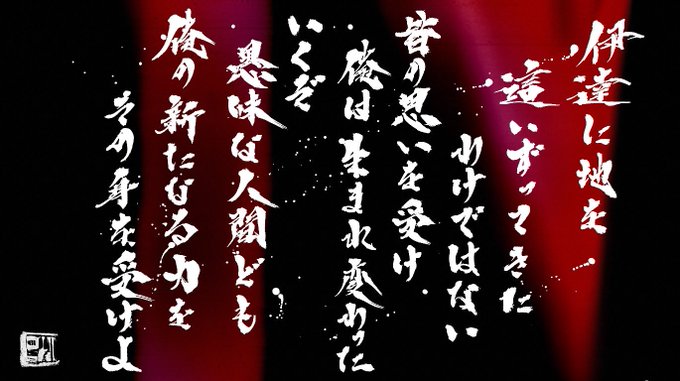 伊達に地を
這いずってきた
わけではない
皆の思いを受け
俺は生まれ変わった
いくぞ
愚味な人間ども
俺の新たなる力を
その身を受けよ